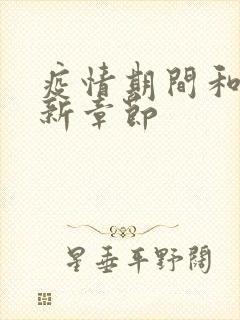 疫情期間和
新章節
星垂平野闊